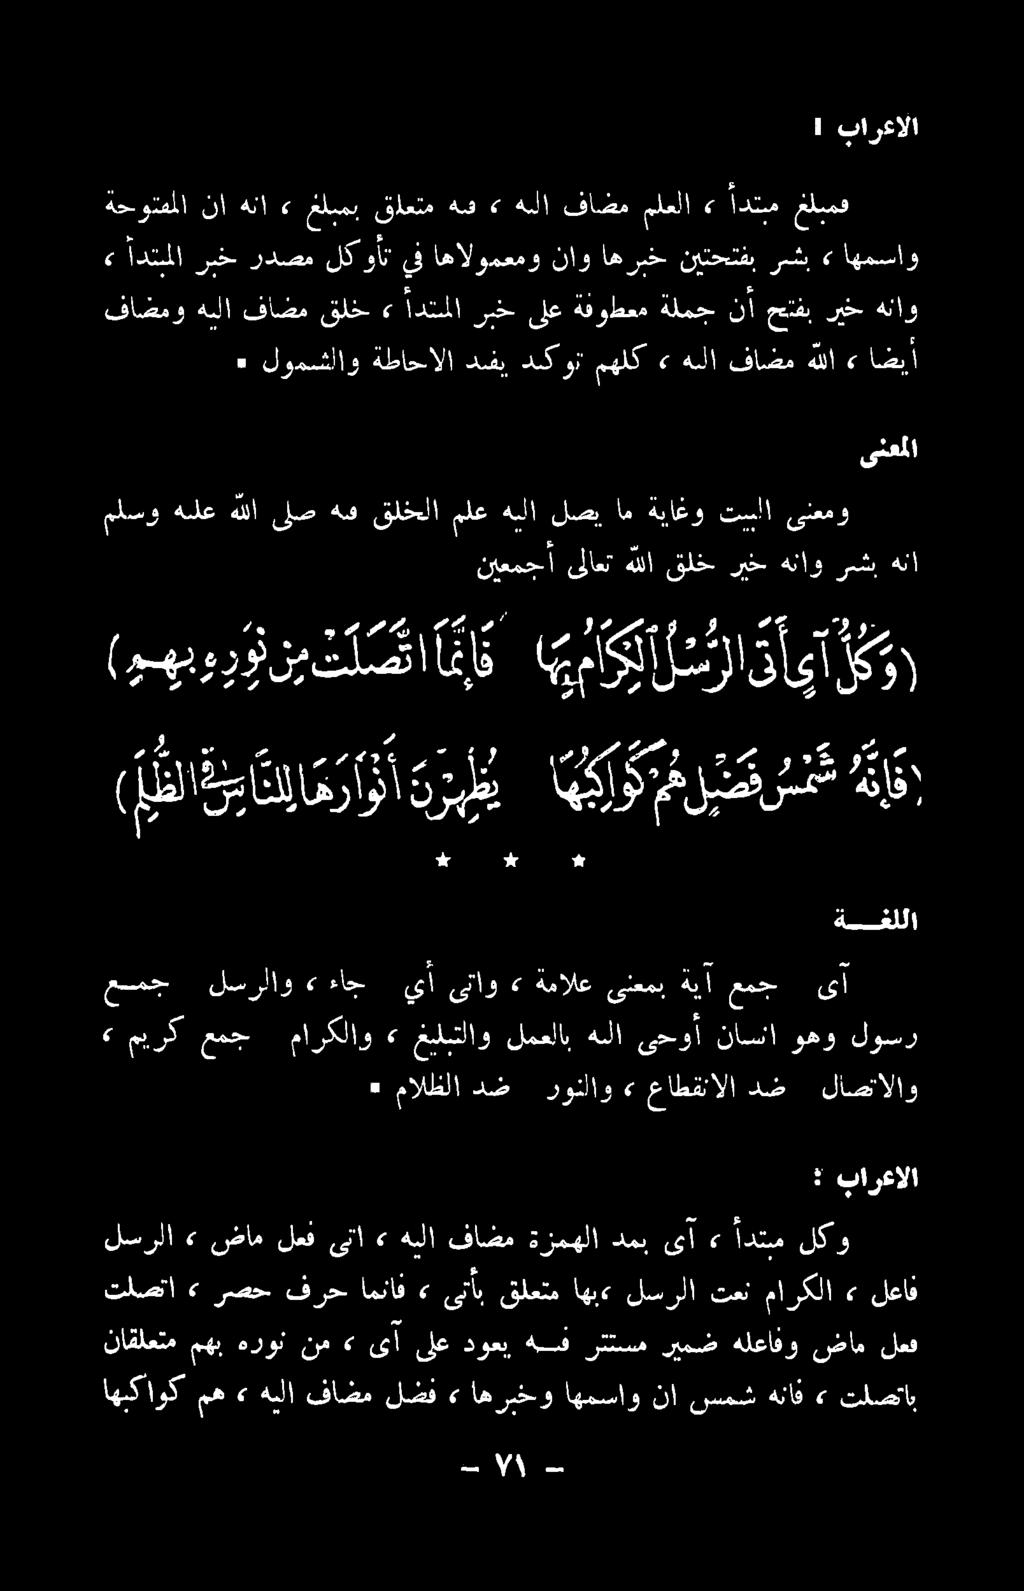 الاعراب :
فمبلغ مبتدأ ، العلم مضاف اليه ، فيه متعلق بمبلغ ، انه ان المفتوحة
واسمها ، بشر بفتحتين خبرها وان ومعمولاها في تأوكل مصدر خبر المبتدأ ،
وانه خير بفتح أن جملة معطوفة على خبر المبتدأ ، خلق مضاف اليه ومضاف
أيضا ، الله مضاف اليه ، كلهم توكيد يفيد الاحاطة والشمول ٠
المعنى
ومعنى البيت وغاية ما يصل اليه علم الخلق فيه صلى الله عليه وسلم
انه بشر وانه خير خلق الله تعالى أجمعين
(وَكُلُّ آيٍ أَتَى الرُّسُلُ الْكِرَامُ بِهَا فَإِنَّمَا اتَّصَلَتْ مِنْ نُورِهِ بِهِمِ)
(فَإِنَّهُ شَمْسُ فَضْلٍ هُمْ كَوَاكِبُهَا يُظْهِرْنَ أَنْوَارَهَا لِلنَّاسِ فِي الظُّلَمِ)
★ ★ ★
اللغـــة
آى جمع آية بمعنى علامة ، واتى أي جاء ، والرسل جمـــع
رسول وهو انسان أوحى اليه بالعمل والتبليغ ، والكرام جمع كريم ،
والاتصال ضد الانقطاع ، والنور ضد الظلام ٠
الاعراب :
وكل مبتدأ ، آى بمد الهمزة مضاف اليه ، اتى فعل ماض ، الرسل
فاعل ، الكرام نعت الرسل ،بها متعلق بأتى ، فانما حرف حصر ، اتصلت
فعل ماض وفاعله ضمير مستتر فـــيه يعود على آى ، من نوره بهم متعلقان
باتصلت ، فانه شمس ان واسمها وخبرها ، فضل مضاف اليه ، هم كواكبها
– ٧١ –